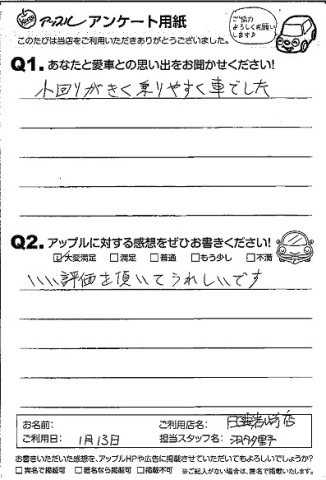 アップル アンケート用紙
ご協力
よろしくお願い
します♪
このたびは当店をご利用いただきありがとうございました。
Q1. あなたと愛車との思い出をお聞かせください!
小回りがきく乗りやすく車でした
Q2. アップルに対する感想をぜひお書きください!
☑大変満足 □満足 □普通 □もう少し □不満
いい評価を頂いてうれしいです
お名前: ご利用店名: 店
ご利用日: 1月13日 担当スタッフ名:
お書きいただいた感想を、アップルHPや広告に掲載させていただいてもよろしいでしょうか?
□実名で掲載可 □匿名なら掲載可 □掲載不可 ※ご記入がない場合は、匿名で掲載いたします。